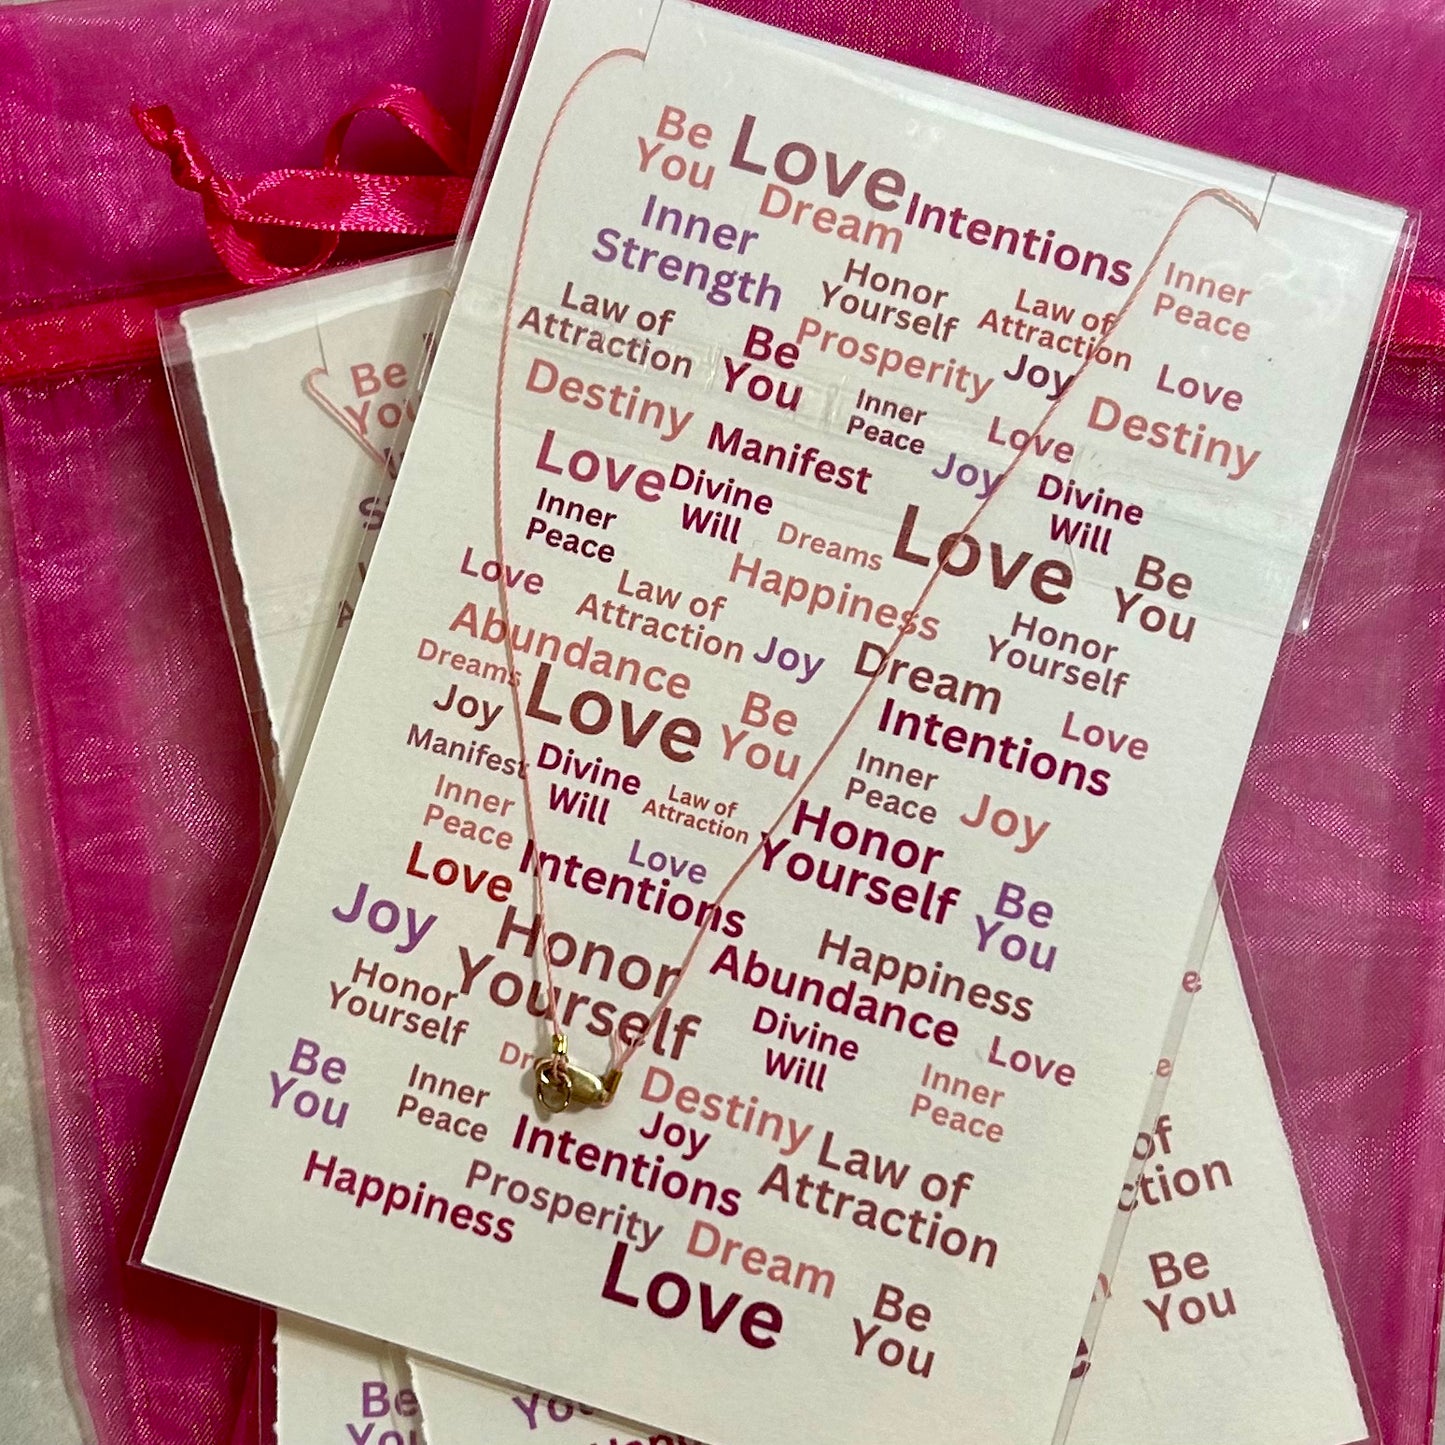 Be
You
Love
Intentions
Dream
Inner
Strength
Honor
Yourself
Law of
Attraction
Inner
Peace
Law of
Attraction
Be
You
Prosperity
Joy
Love
Destiny
Manifest
Inner
Peace
Love
Destiny
Love
Divine
Will
Joy
Divine
Will
Inner
Peace
Dreams
Love
Be
You
Love
Law of
Attraction
Happiness
Honor
Yourself
Abundance
Joy
Dream
Dreams
Love
Be
You
Intentions
Love
Joy
Manifest
Divine
Will
Law of
Attraction
Inner
Peace
Joy
Inner
Peace
Love
Honor
Yourself
Be
You
Love
Intentions
Joy
Honor
Yourself
Abundance
Happiness
Honor
Yourself
Divine
Will
Love
Be
You
Inner
Peace
Destiny
Inner
Peace
Intentions
Joy
Law of
Attraction
Happiness
Prosperity
Dream
Love
Be
You
Be
of
ction
Be
You
Be